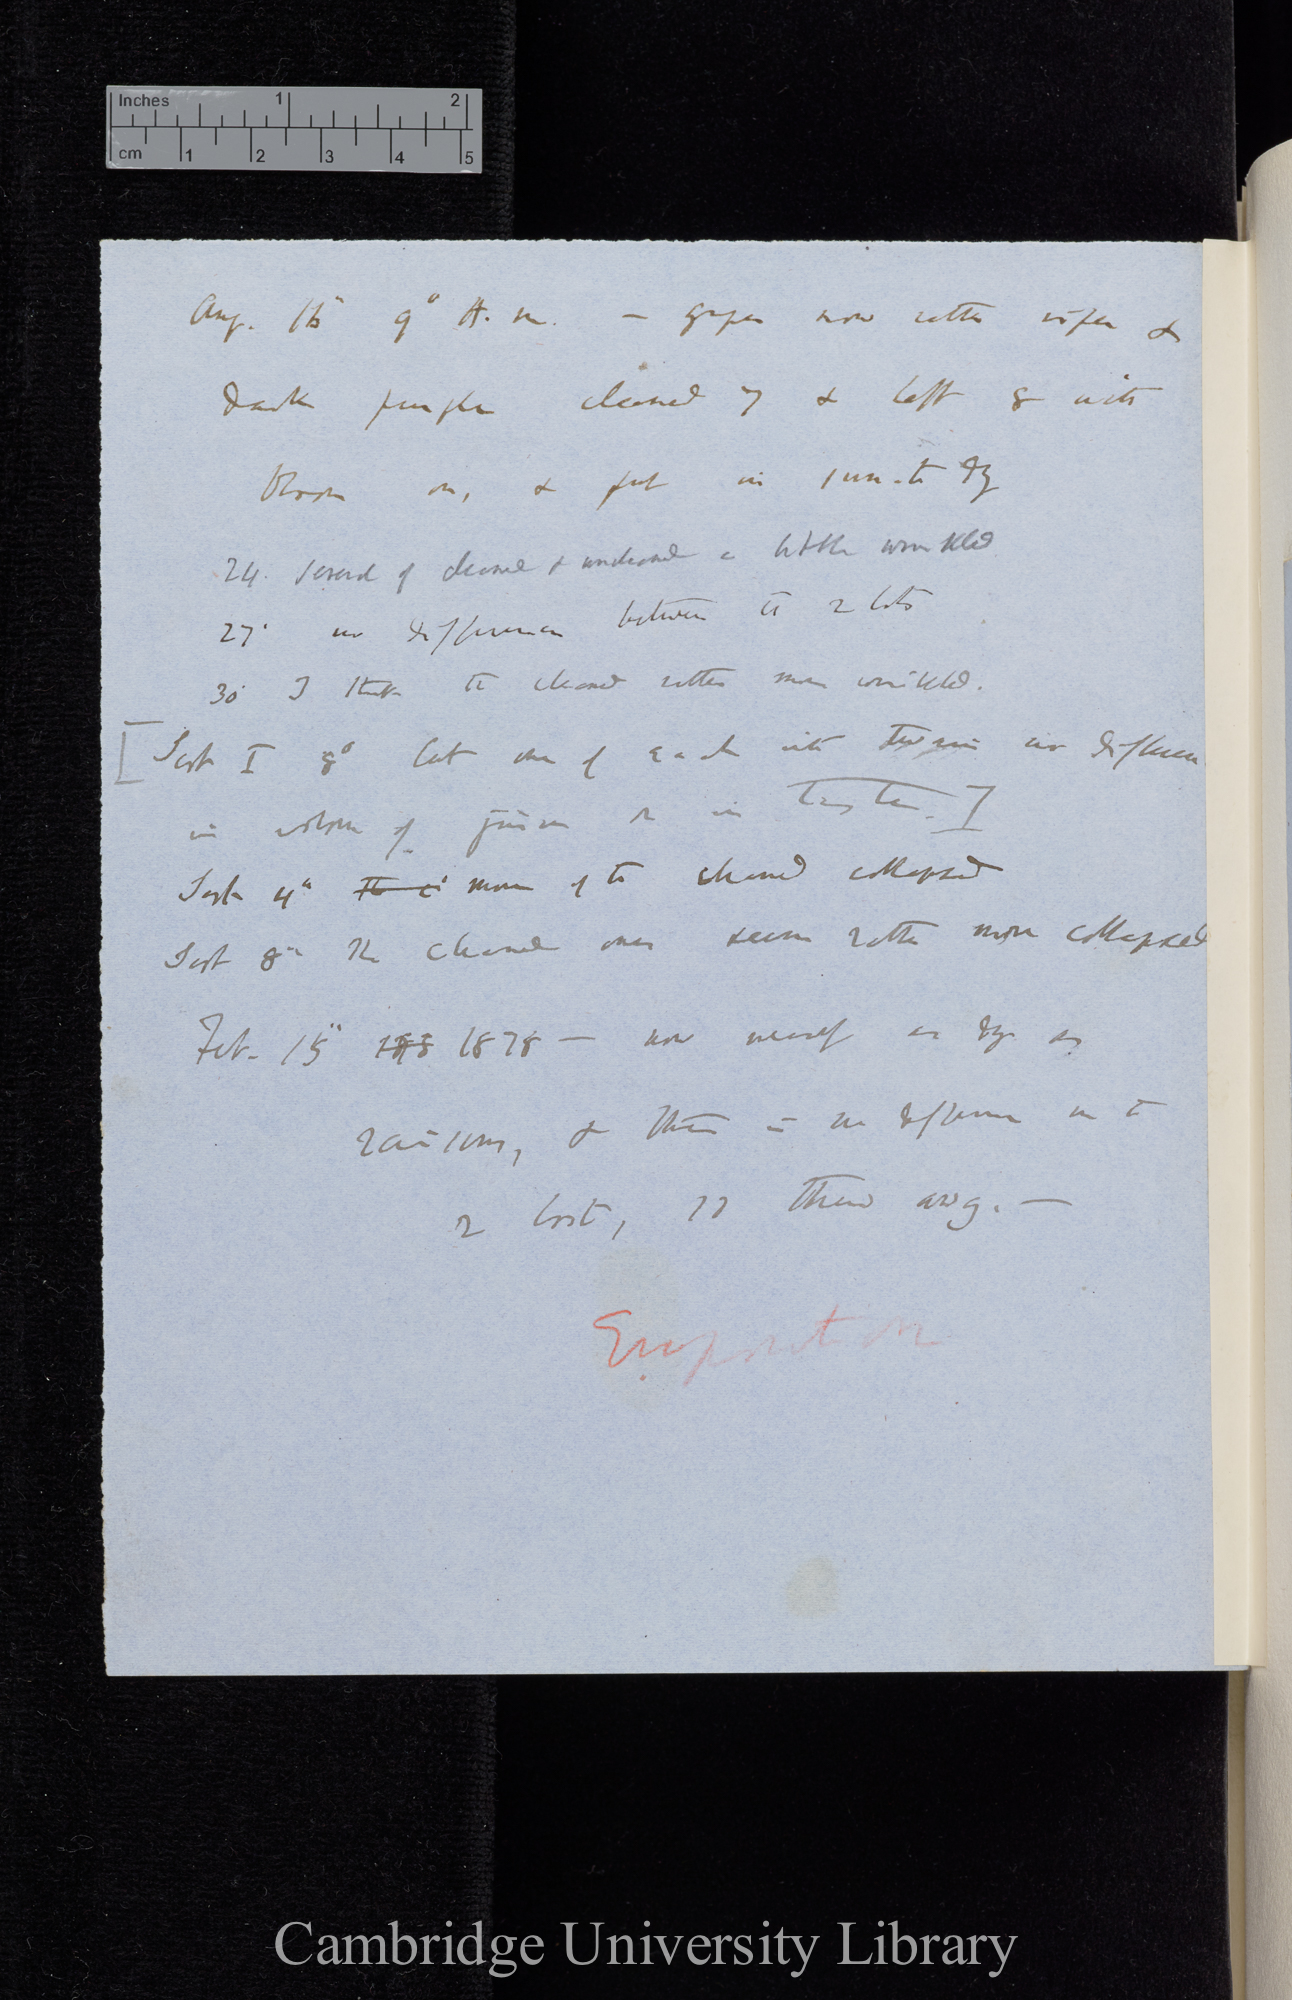 Inches 1 2
cm 1 2 3 4 5
Aug. 16" 9° A. m. — grapes now rather riper &
dark purple cleaned 7 & left 8 with
bloom on, & put in sun to dry
24. several of cleaned & uncleaned a little wrinkled
27. no difference between the 2 lots
30 I think the cleaned rather more wrinkled.
[Sept I 8° cut one of each with no difference
in colour of juice or in taste.]
Sept 4" more of the cleaned collapsed
Sept 8" The cleaned ones seem rather more collapsed
Feb. 15" 1878 — now nearly as dry as
raisins, & there is no difference in the
2 lots, so thrown away. —
Evaporation
Cambridge University Library